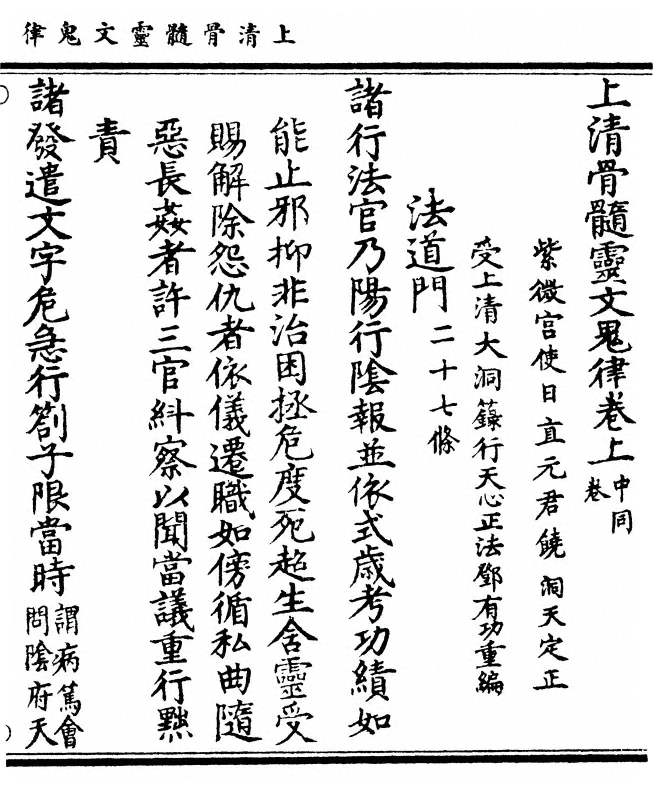 上清骨髓靈文鬼律
上清骨髓靈文鬼律卷上中同卷
紫微宮使日直元君饒洞天定正
受上清大洞籙行天心正法鄧有功重編
法道門二十七條
諸行法官乃陽行陰報並依式歲考功績如
能止邪抑非治困拯危度死超生含靈受
賜解除怨仇者依儀遷職如傍循私曲隨
惡長姦者許三官糾察以聞當議重行黜
責
諸發遣文字危急行劄子限當時謂病篤會問陰府天